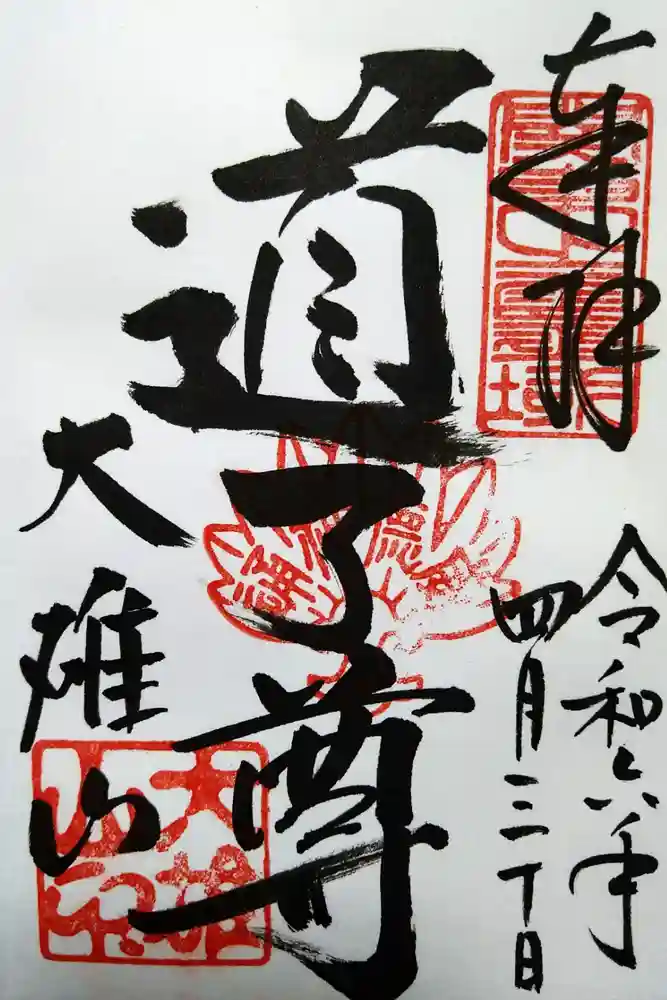 奉拝
令和六年
四月三十日
道了尊
大雄山